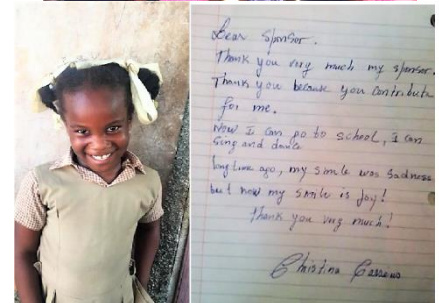 Dear Sponsor.
Thank you very much my sponsor.
Thank you because you contribute
for me.
Now I can go to school, I can
sing and dance
long time ago, my smile was sadness
but now my smile is Joy!
Thank you very much!
Christina